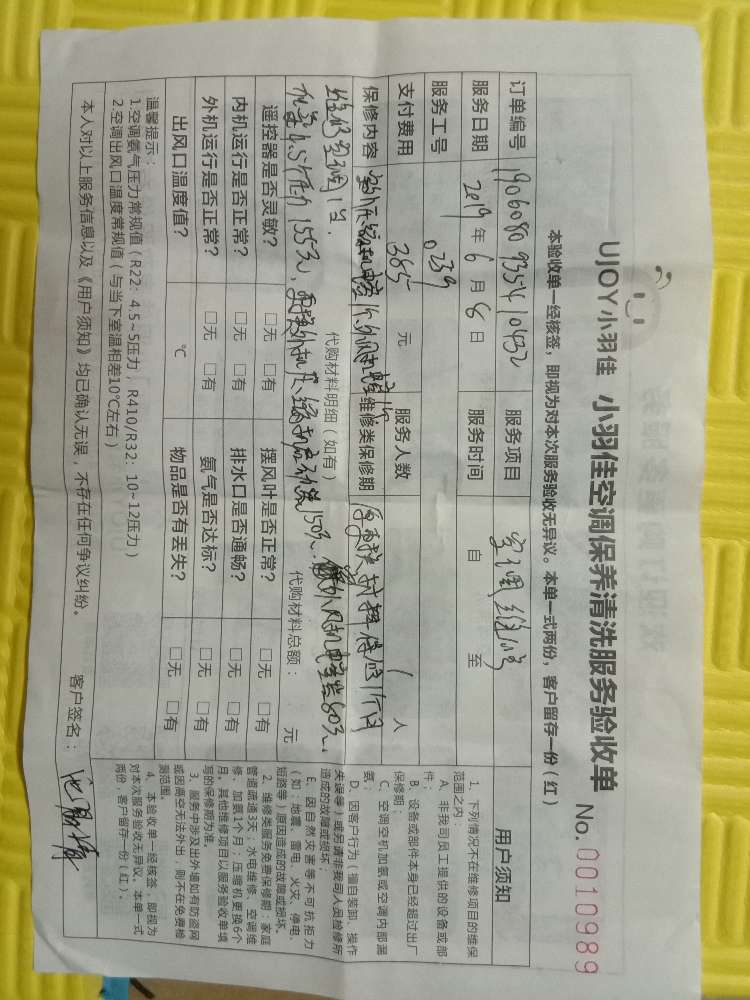 UJOY小羽佳 小羽佳空调保养清洗服务验收单 No. 0010989
本验收单一经核签，即视为对本次服务验收无异议。本单一式两份，客户留存一份（红）
订单编号 服务项目 空调维修
服务日期 2019 年 6 月 8 日 服务时间 自 至
服务工号 039
支付费用 365 元 服务人数 1 人
保修内容 维修类保修期
维修空调1台. 代购材料明细（如有） 代购材料总额： 元
遥控器是否灵敏？ □无 □有 摆风叶是否正常？ □无 □有
内机运行是否正常？ □无 □有 排水口是否通畅？ □无 □有
外机运行是否正常？ □无 □有 氨气是否达标？ □无 □有
出风口温度值？ ℃ 物品是否有丢失？ □无 □有
温馨提示：
1.空调氨气压力常规值（R22：4.5～5压力，R410/R32：10~12压力）
2.空调出风口温度常规值（与当下室温相差10℃左右）
本人对以上服务信息以及《用户须知》均已确认无误，不存在任何争议纠纷。 客户签名：
用户须知
1、下列情况不在维修项目的维保
范围之内：
A、非我司员工提供的设备或部
件；
B、设备或部件本身已经超过出厂
保修期；
C、空调空机加氨或空调内部漏
氨；
D、因客户行为（擅自装卸、操作
失误等）或另请非我司人员检修所
造成的故障或损坏；
E、因自然灾害等不可抗拒力
（如：地震、雷电、火灾、停电、
短路等）原因造成的故障或损坏。
2、维修类服务免费保修期：家庭
管道疏通3天；水电维修、空调维
修、加氨1个月；压缩机更换6个
月；其他维修项目以服务验收单填
写的保修期为准。
3、服务中涉及出外墙如有防盗网
或因高空无法外出，则不在免费检
测范围。
4、本验收单一经核签，即视为
对本次服务验收无异议。本单一式
两份，客户留存一份（红）。